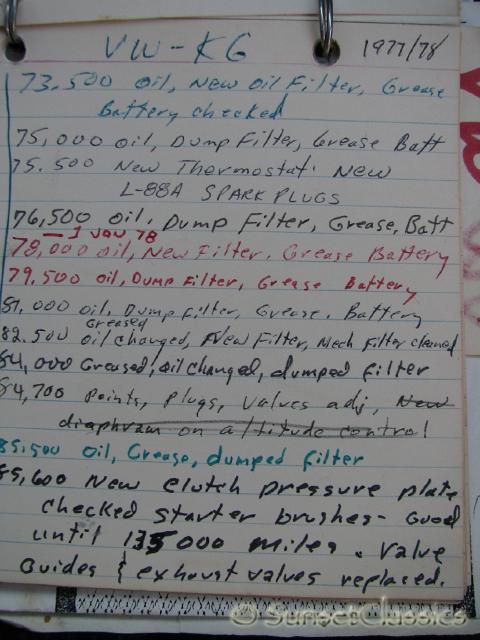 VW-KG 1977/78
73,500 oil, New oil Filter, Grease
Battery checked
75,000 oil, Dump Filter, Grease Batt
75,500 New Thermostat. New
L-88A SPARK PLUGS
76,500 oil, Dump Filter, Grease, Batt
— 1 JAN 78
78,000 oil, New Filter, Grease Battery
79,500 oil, Dump Filter, Grease Battery
81,000 oil, Dump filter, Grease, Battery
Greased
82,500 oil changed, New Filter, Mech Filter cleaned
84,000 Greased, oil changed, dumped filter
84,700 Points, Plugs, Valves adj, New
diaphram on altitude control
85,500 oil, Grease, dumped filter
85,600 New clutch pressure plate
checked starter brushes- Good
until 135000 miles. Valve
Guides & exhaust valves replaced.
© SunsetClassics